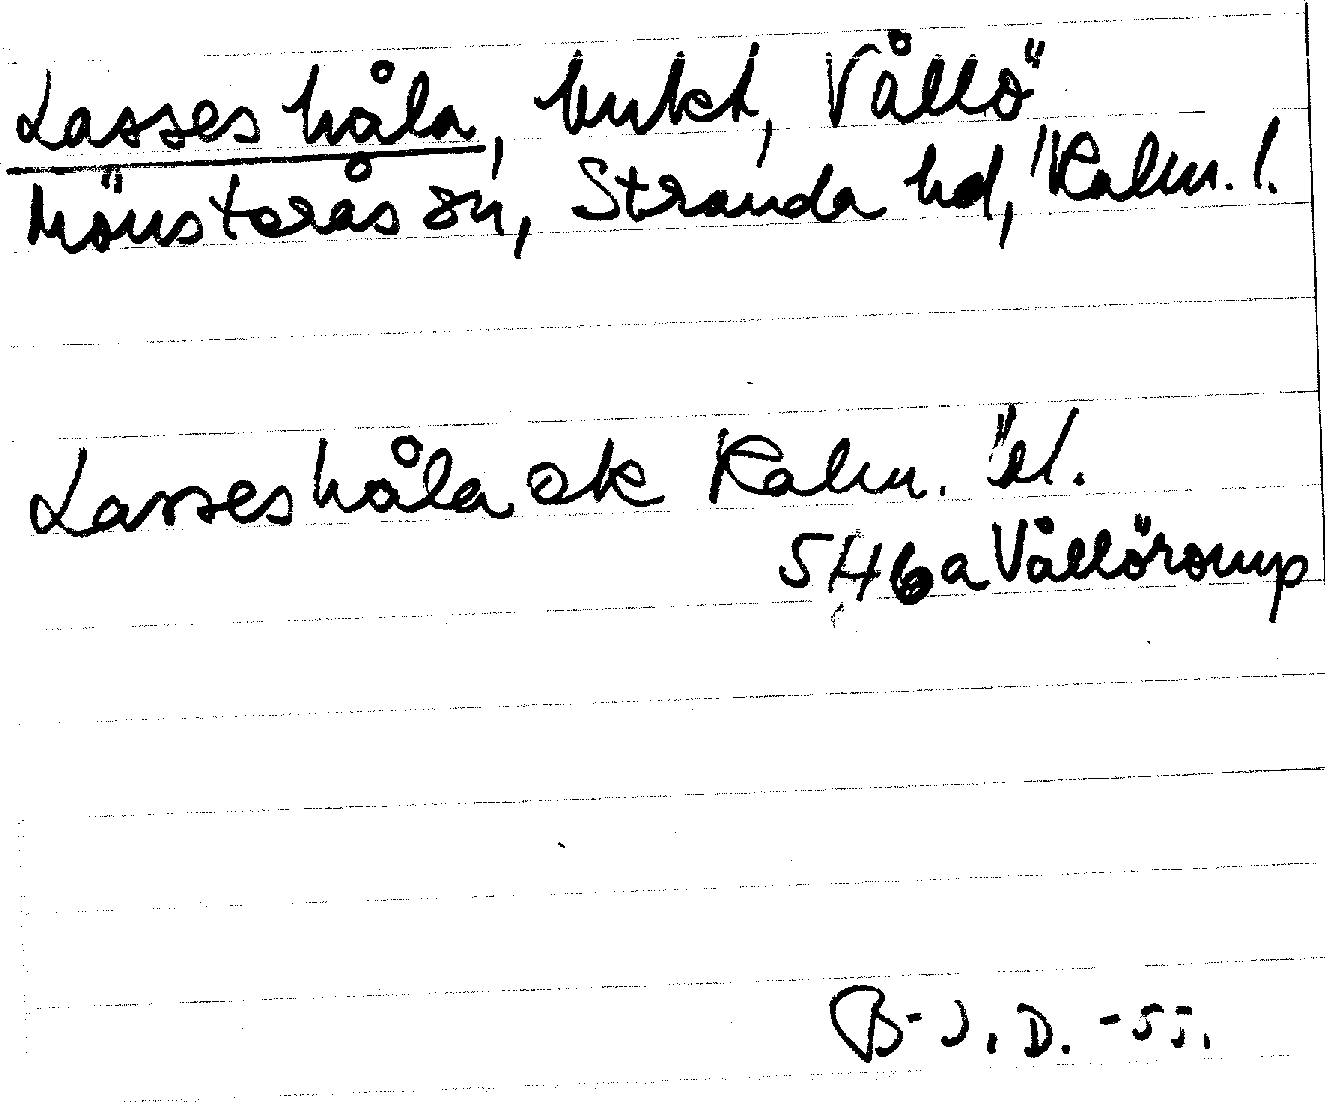 Lasses håla, bukt, Vållö
Mönsterås sn, Stranda hd, Kalm. l.
Lasses håla ek Kalm. bl.
546a Vållöromp
B-J.D. -55.